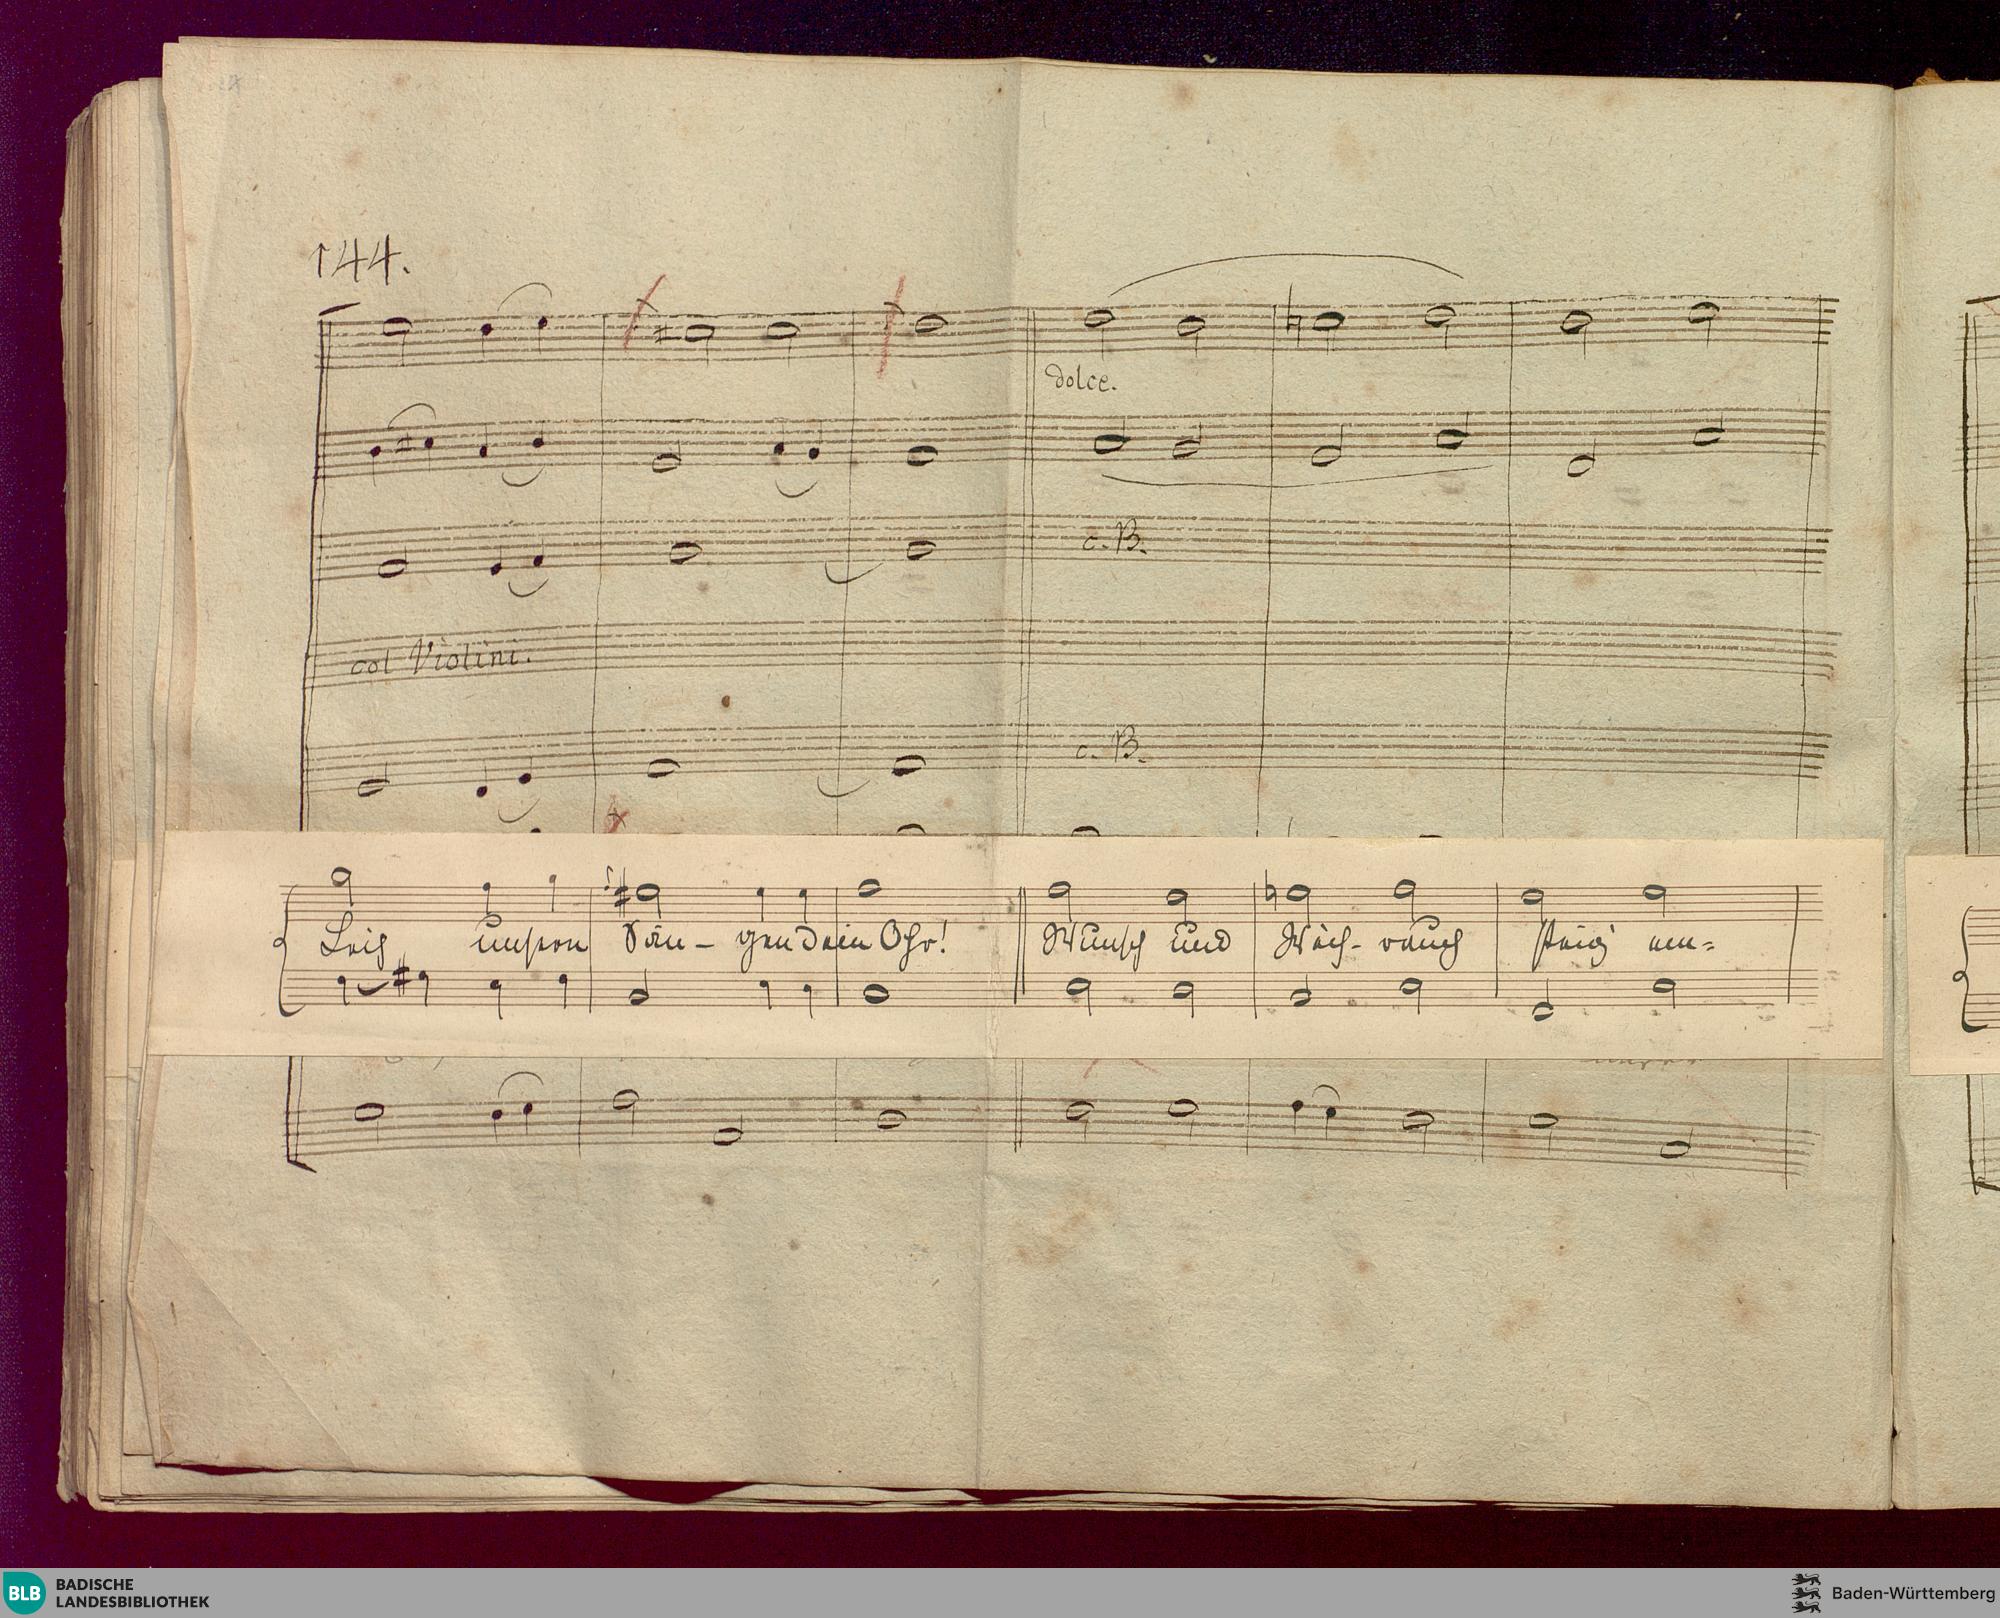 144.
dolce.
c. B.
col Violini.
c. B.
Leih unsern Sän- gen dein Ohr! Wunsch und Weih- rauch steig' em=
BLB BADISCHE
LANDESBIBLIOTHEK
Baden-Württemberg